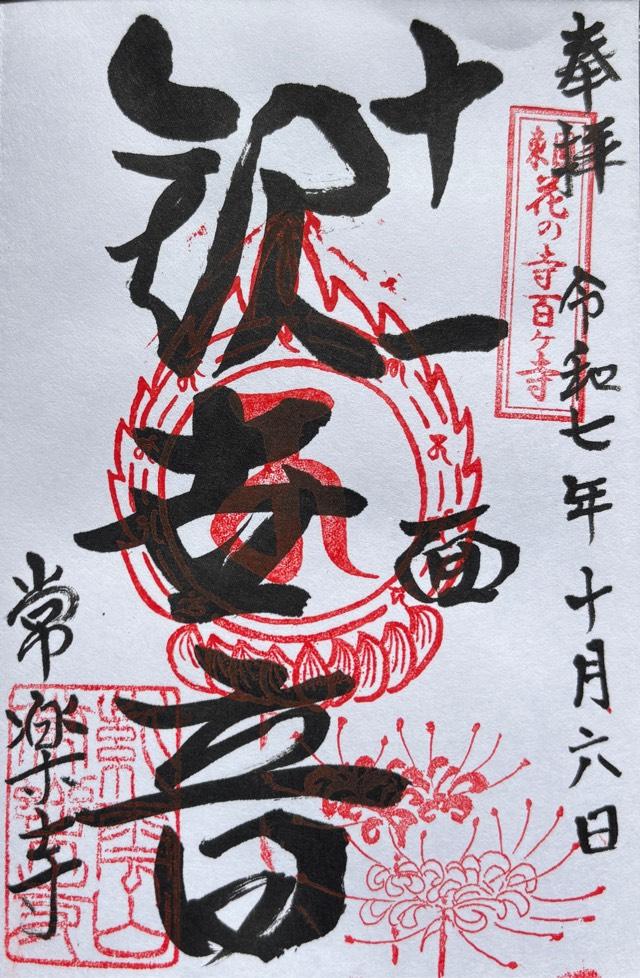 奉拝 令和七年十月六日
東国花の寺百ヶ寺
十一面
観世音
常楽寺